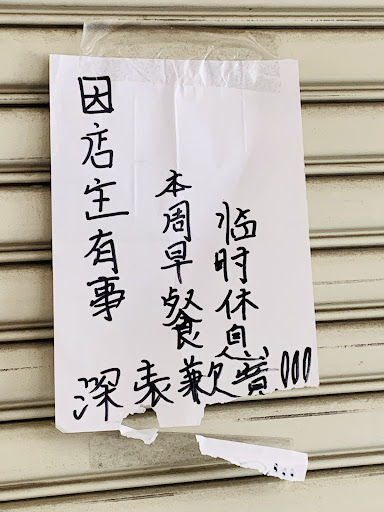 因店主有事
本周早餐
临时休息
深表歉意!!!